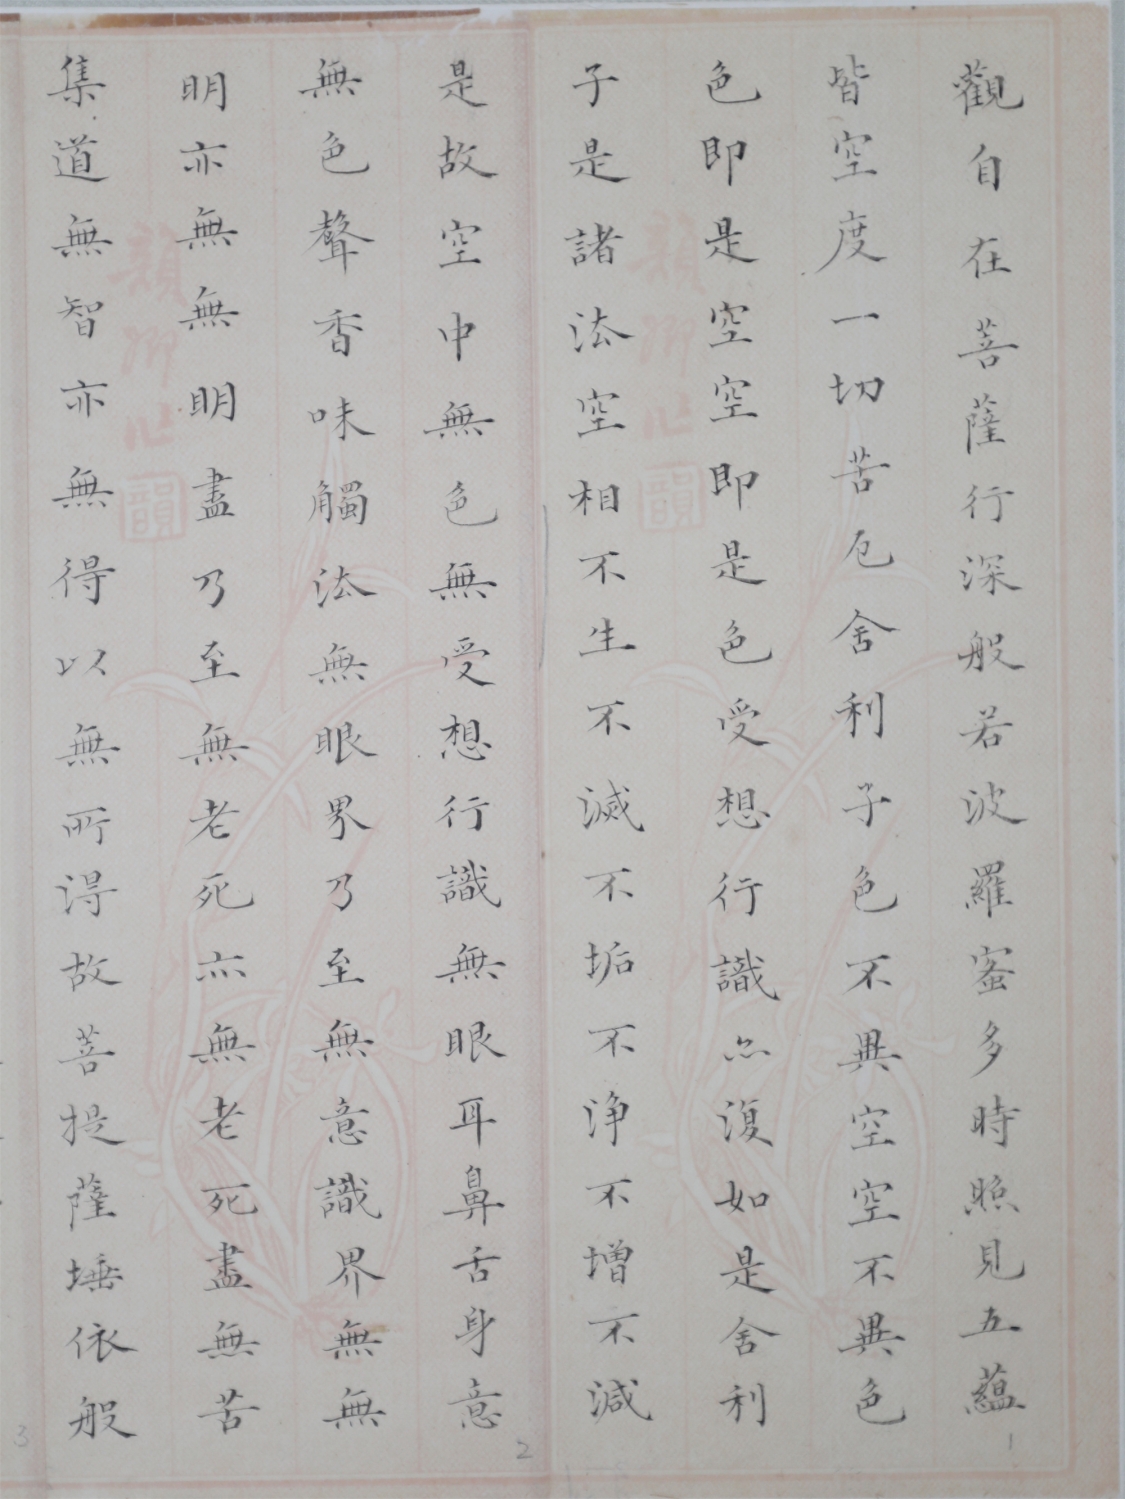 觀自在菩薩行深般若波羅蜜多時照見五蘊
皆空度一切苦厄舍利子色不異空空不異色
色即是空空即是色受想行識亦復如是舍利
子是諸法空相不生不滅不垢不浄不增不減
是故空中無色無受想行識無眼耳鼻舌身意
無色聲香味觸法無眼界乃至無意識界無無
明亦無無明盡乃至無老死亦無老死盡無苦
集道無智亦無得以無所得故菩提薩埵依般
1
2
3